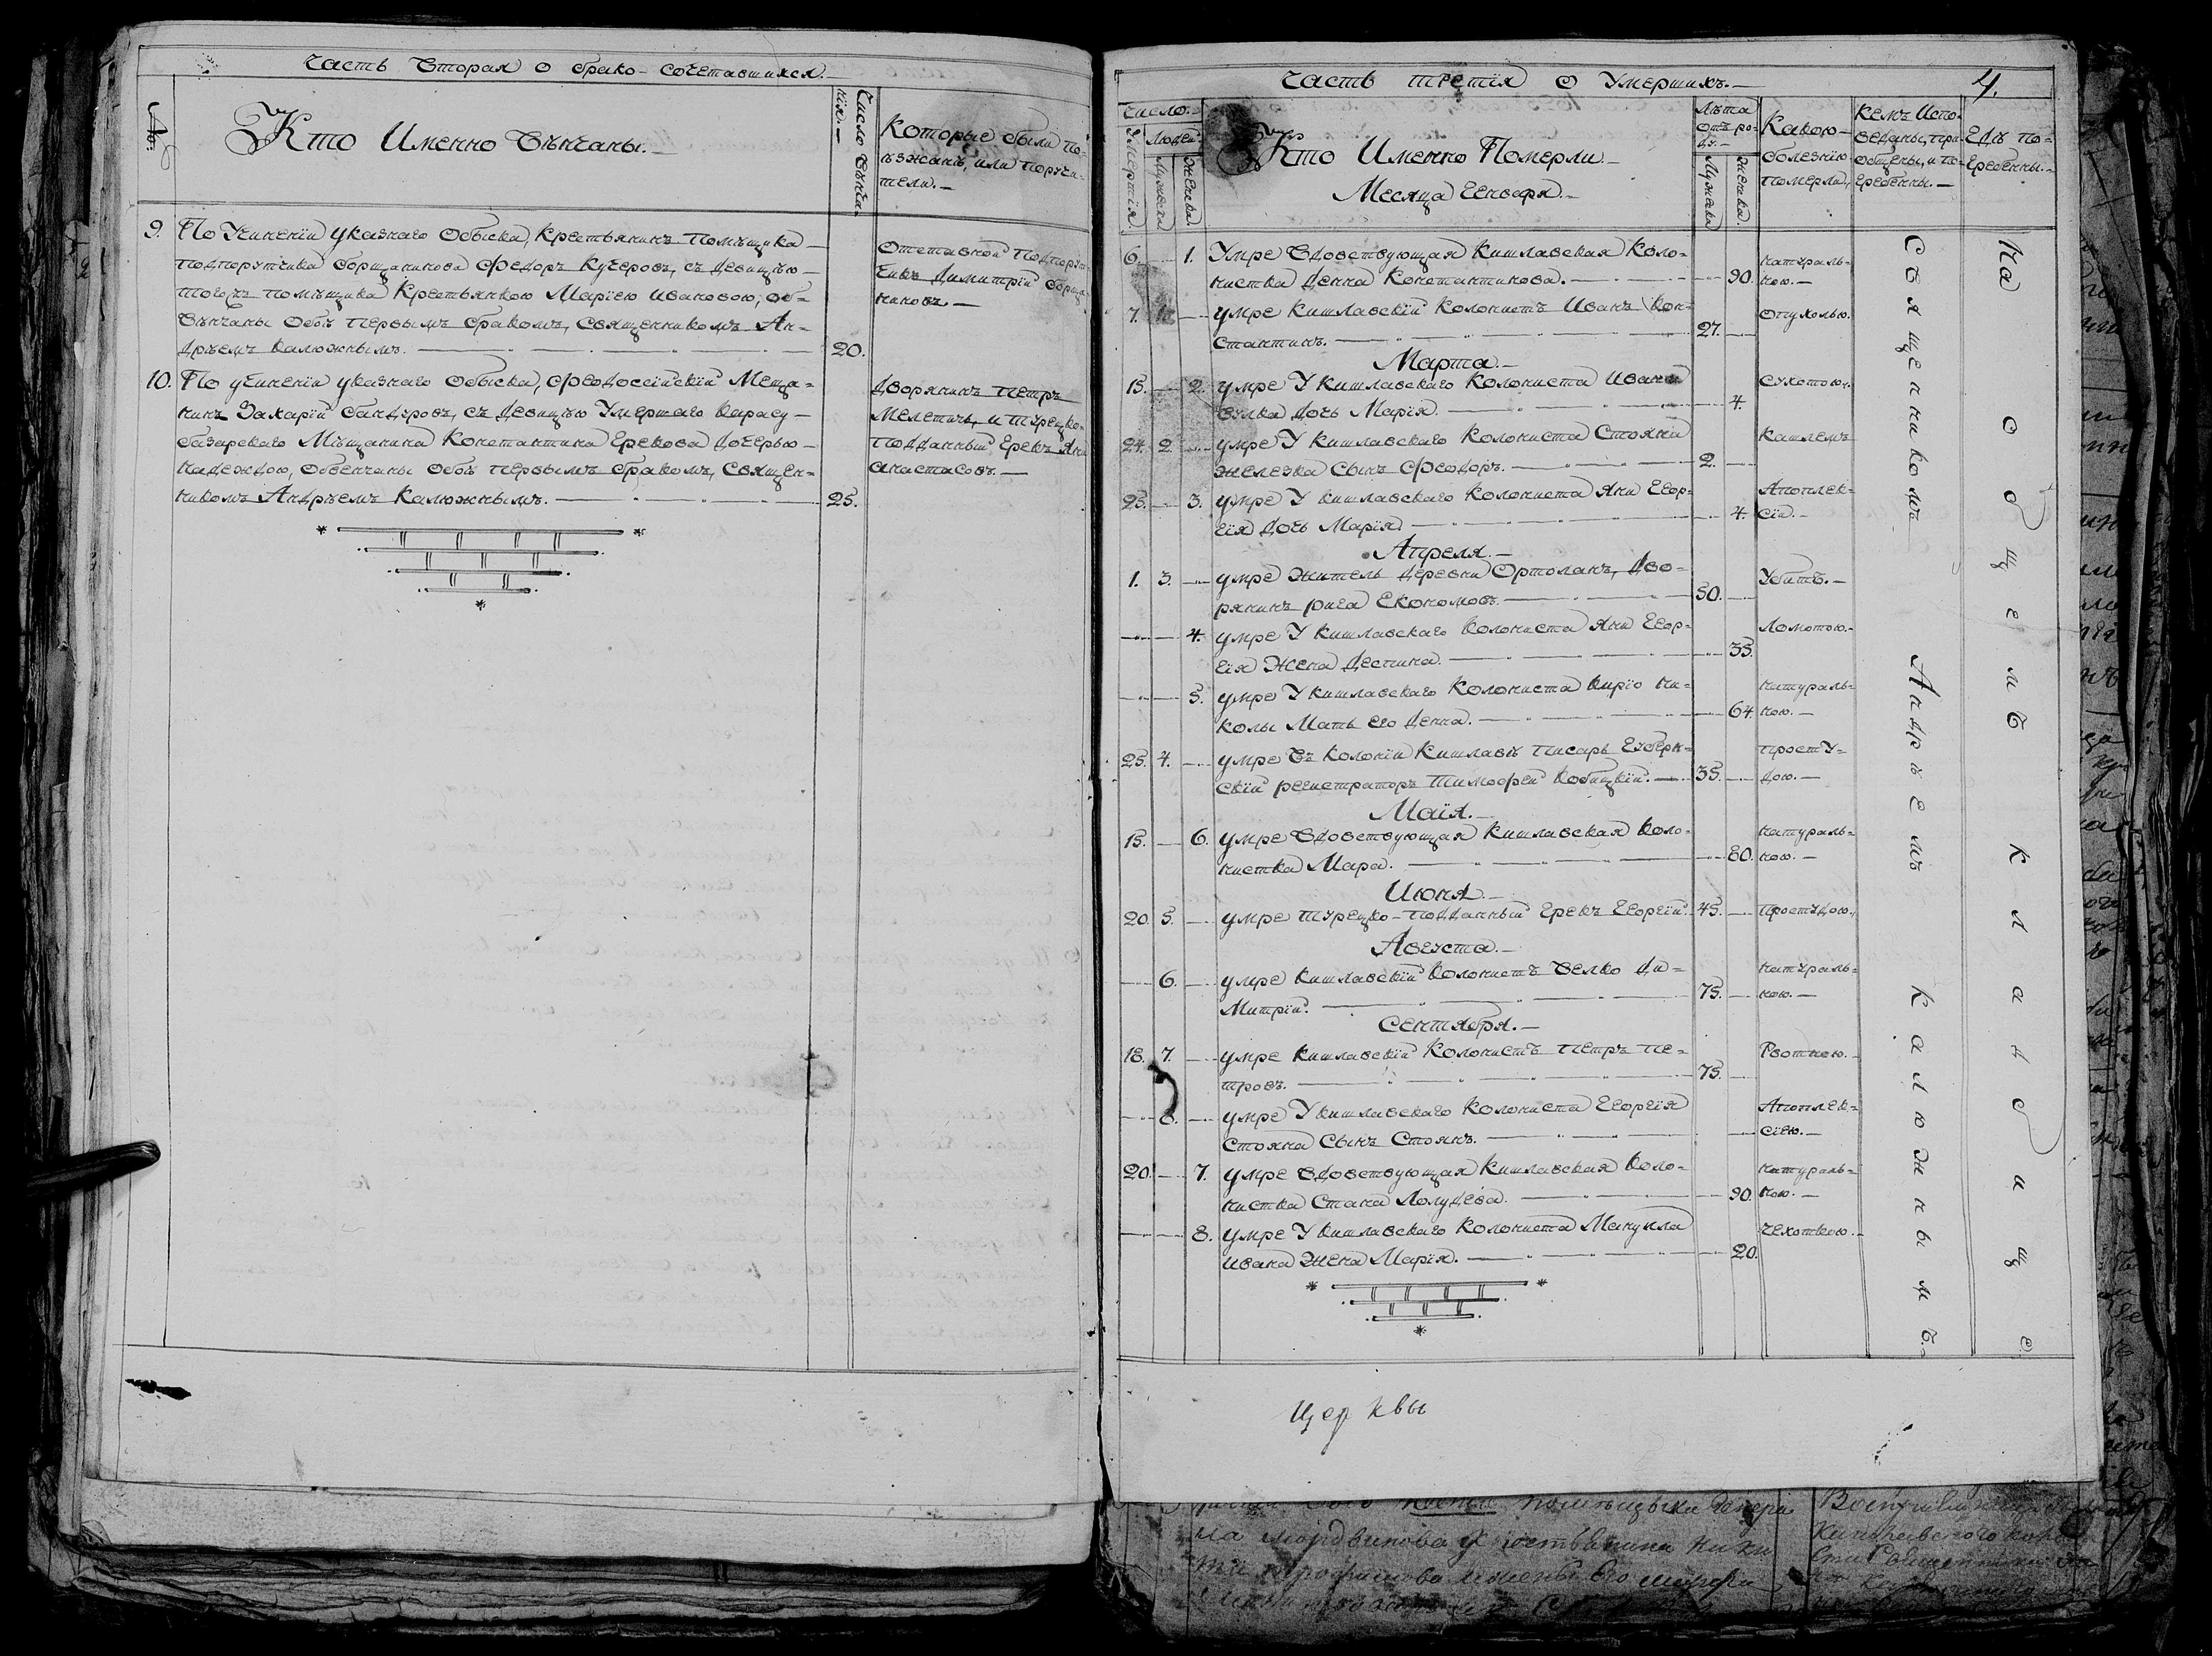 Часть Вторая о брако-сочетавшихся.
№:
Кто Именно Вѣнчаны.
Число Вѣнча-
нія.
Которые были по-
ѣзжанѣ, или поручи-
тели.
9. По Учиненіи указнаго Обыска, Крестьянинъ Помѣщика
подпорутчика борщаникова Федоръ Кучеровъ, съ девицѣю
тогожъ помѣщика Крестьянкою Маріею Ивановою, об-
вѣнчаны Обѣ первымъ бракомъ, Священникомъ Ан-
дрѣемъ Калюжнымъ. 20.
Отставной Подпорут-
чикъ Димитрій борща-
никовъ.
10. По учиненіи указнаго Обыска, Феодоссійскій Меща-
нинъ Захарій бандуровъ, съ девицѣю Умершаго Карасу-
базарскаго Мѣщанина Константина Грекова дочерью
надеждою, Обвенчаны Обѣ первымъ бракомъ, Священ-
никомъ Андрѣемъ Калюжнымъ. 25.
Дворянинъ Петръ
Мелетичъ, и Турецко-
подданный Грекъ Яни
Анастасовъ.
Часть третія о Умершихъ.
4.
Число.
Умертвія
Людей.
Мужеска
Женска.
Кто Именно Померли.
Месяца Генваря.
Лѣта
Отъ ро-
ду.
Мужеска
Женска.
Какою
болезнію
померли,
Кемъ Испо-
веданы, при-
общены, и по-
гребенны.
Гдѣ по-
гребенны.
6. 1. Умре Вдовствующая Кишлавская Коло-
нистка Денна Константинова. 90. натураль-
ною.
7. умре Кишлавскій Колонистъ Иванъ Кон-
стантинъ. 27. опухолью.
Марта.
15. 2. умре У Кишлавскаго Колониста Ивана
Вулка дочь Марія. 4. Сухотою,
24. 2. умре У Кишлавскаго Колониста Стояна
Железка Сынъ Феодоръ. 2. Кашлемъ
25. 3. умре У Кишлавскаго Колониста Яни Геор-
гія дочь Марія 4. Апоплек-
сіа.
Апреля.
1. 3. умре Житель деревни Ортоланъ, дво-
рянинъ рига Економовъ. 50. Убитъ.
4. умре У Кишлавскаго Колониста Яни Геор-
гія Жена Деспина. 35. Ломотою.
5. умре У Кишлавскаго Колониста Кирію Ни-
колы Мать Его Денна. 64 натураль-
ною.
25. 4. умре Въ Колоніи Кишлавѣ писарь Губерн-
скій регистраторъ Тимофей Кобицкій. 35. просту-
дою.
Маія.
15. 6. умре Вдовствующая Кишлавская Коло-
нистка Мара. 80. натураль-
ною.
Июня
20. 5. умре Турецко-подданный Грекъ Георгій. 45. простудою,
Августа.
6. умре Кишлавскій Колонистъ Велко Ди-
митрій. 75. натураль-
ною.
Сентября.
18. 7. умре Кишлавскій Колонистъ Петръ Пе-
тровъ. 75. Рвотною.
8. умре У Кишлавскаго Колониста Георгія
Стояна Сынъ Стоянъ. Апоплек-
сіею.
20. 7. умре Вдовствующая Кишлавская Коло-
нистка Стана Лолудева. 90. натураль-
ною.
8. умре У Кишлавскаго Колониста Манулла
Ивана Жена Марія. 20. чехоткою.
Священникомъ Андрѣемъ Калюжнымъ.
На общемъ кладбищѣ
Церквы